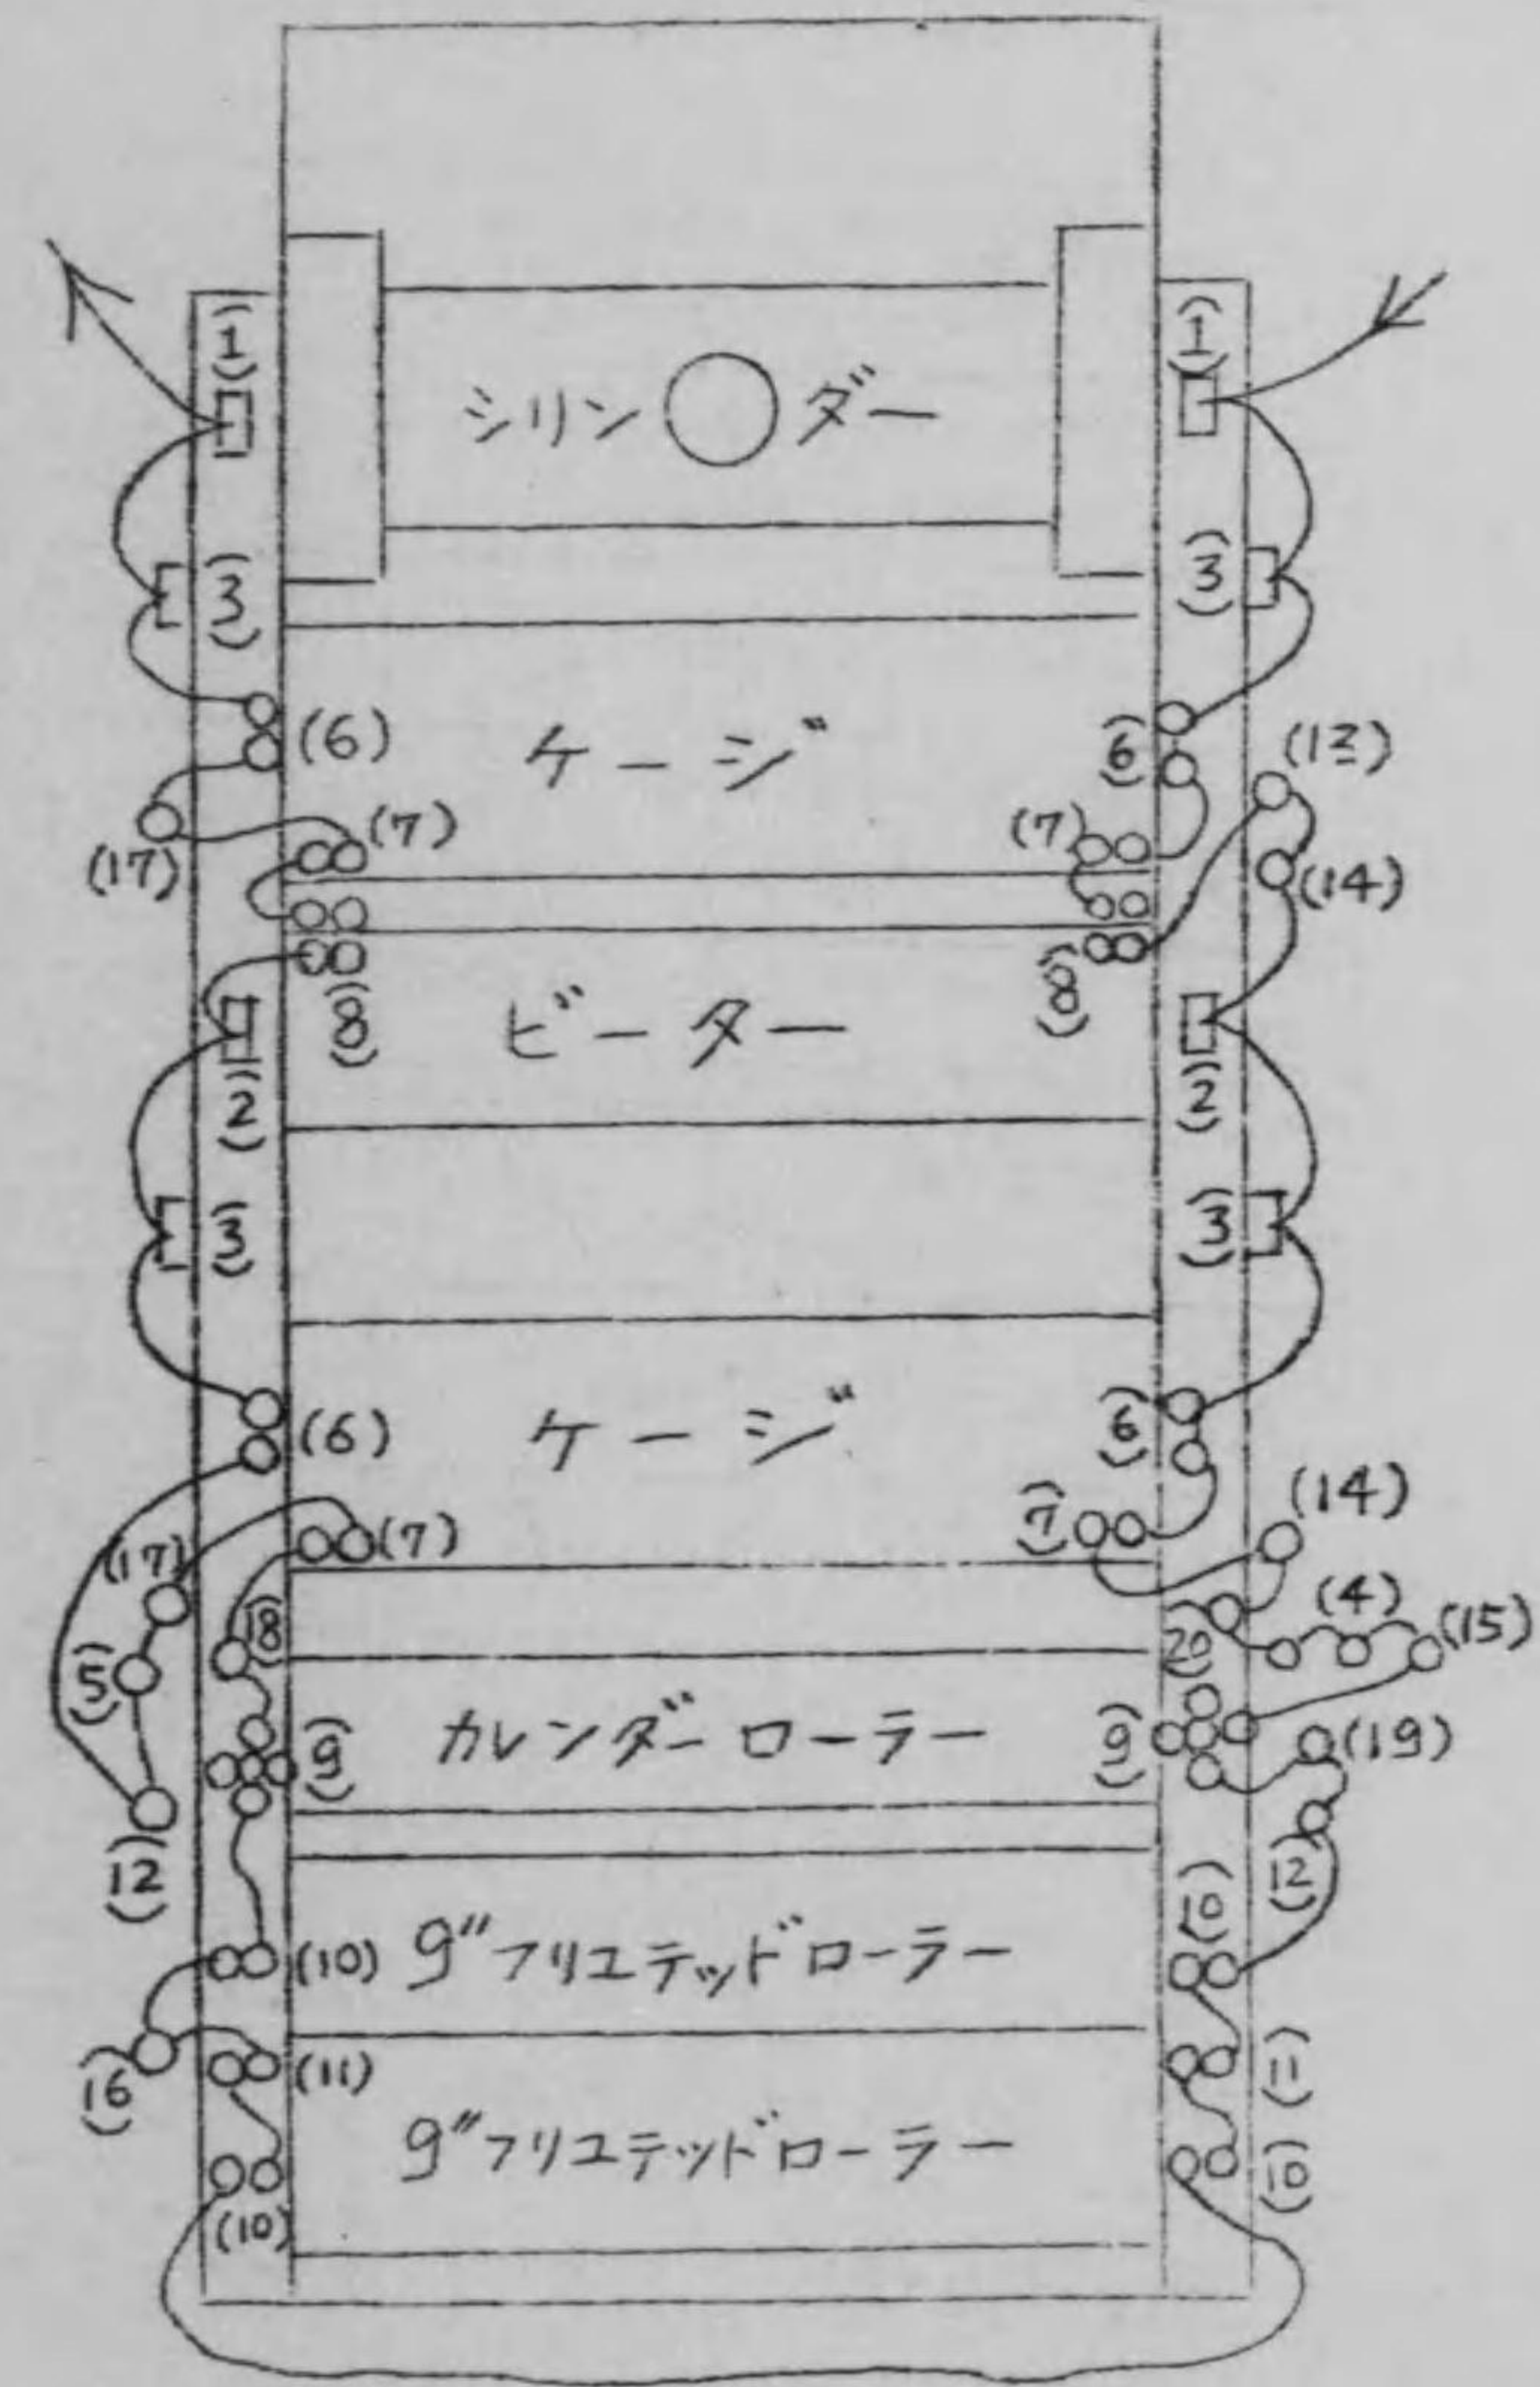 (1)
(1)
シリンダー
(3)
(3)
(6)
ケージ
(6)
(13)
(17)
(7)
(7)
(14)
(8)
ビーター
(8)
(2)
(2)
(3)
(3)
(6)
ケージ
(6)
(14)
(17)
(7)
(7)
(5)
(18)
(20)
(4)
(15)
(9)
カレンダーローラー
(9)
(19)
(12)
(12)
(10)
9"フリユテッドローラー
(10)
(16)
(11)
(11)
9"フリユテッドローラー
(10)
(10)